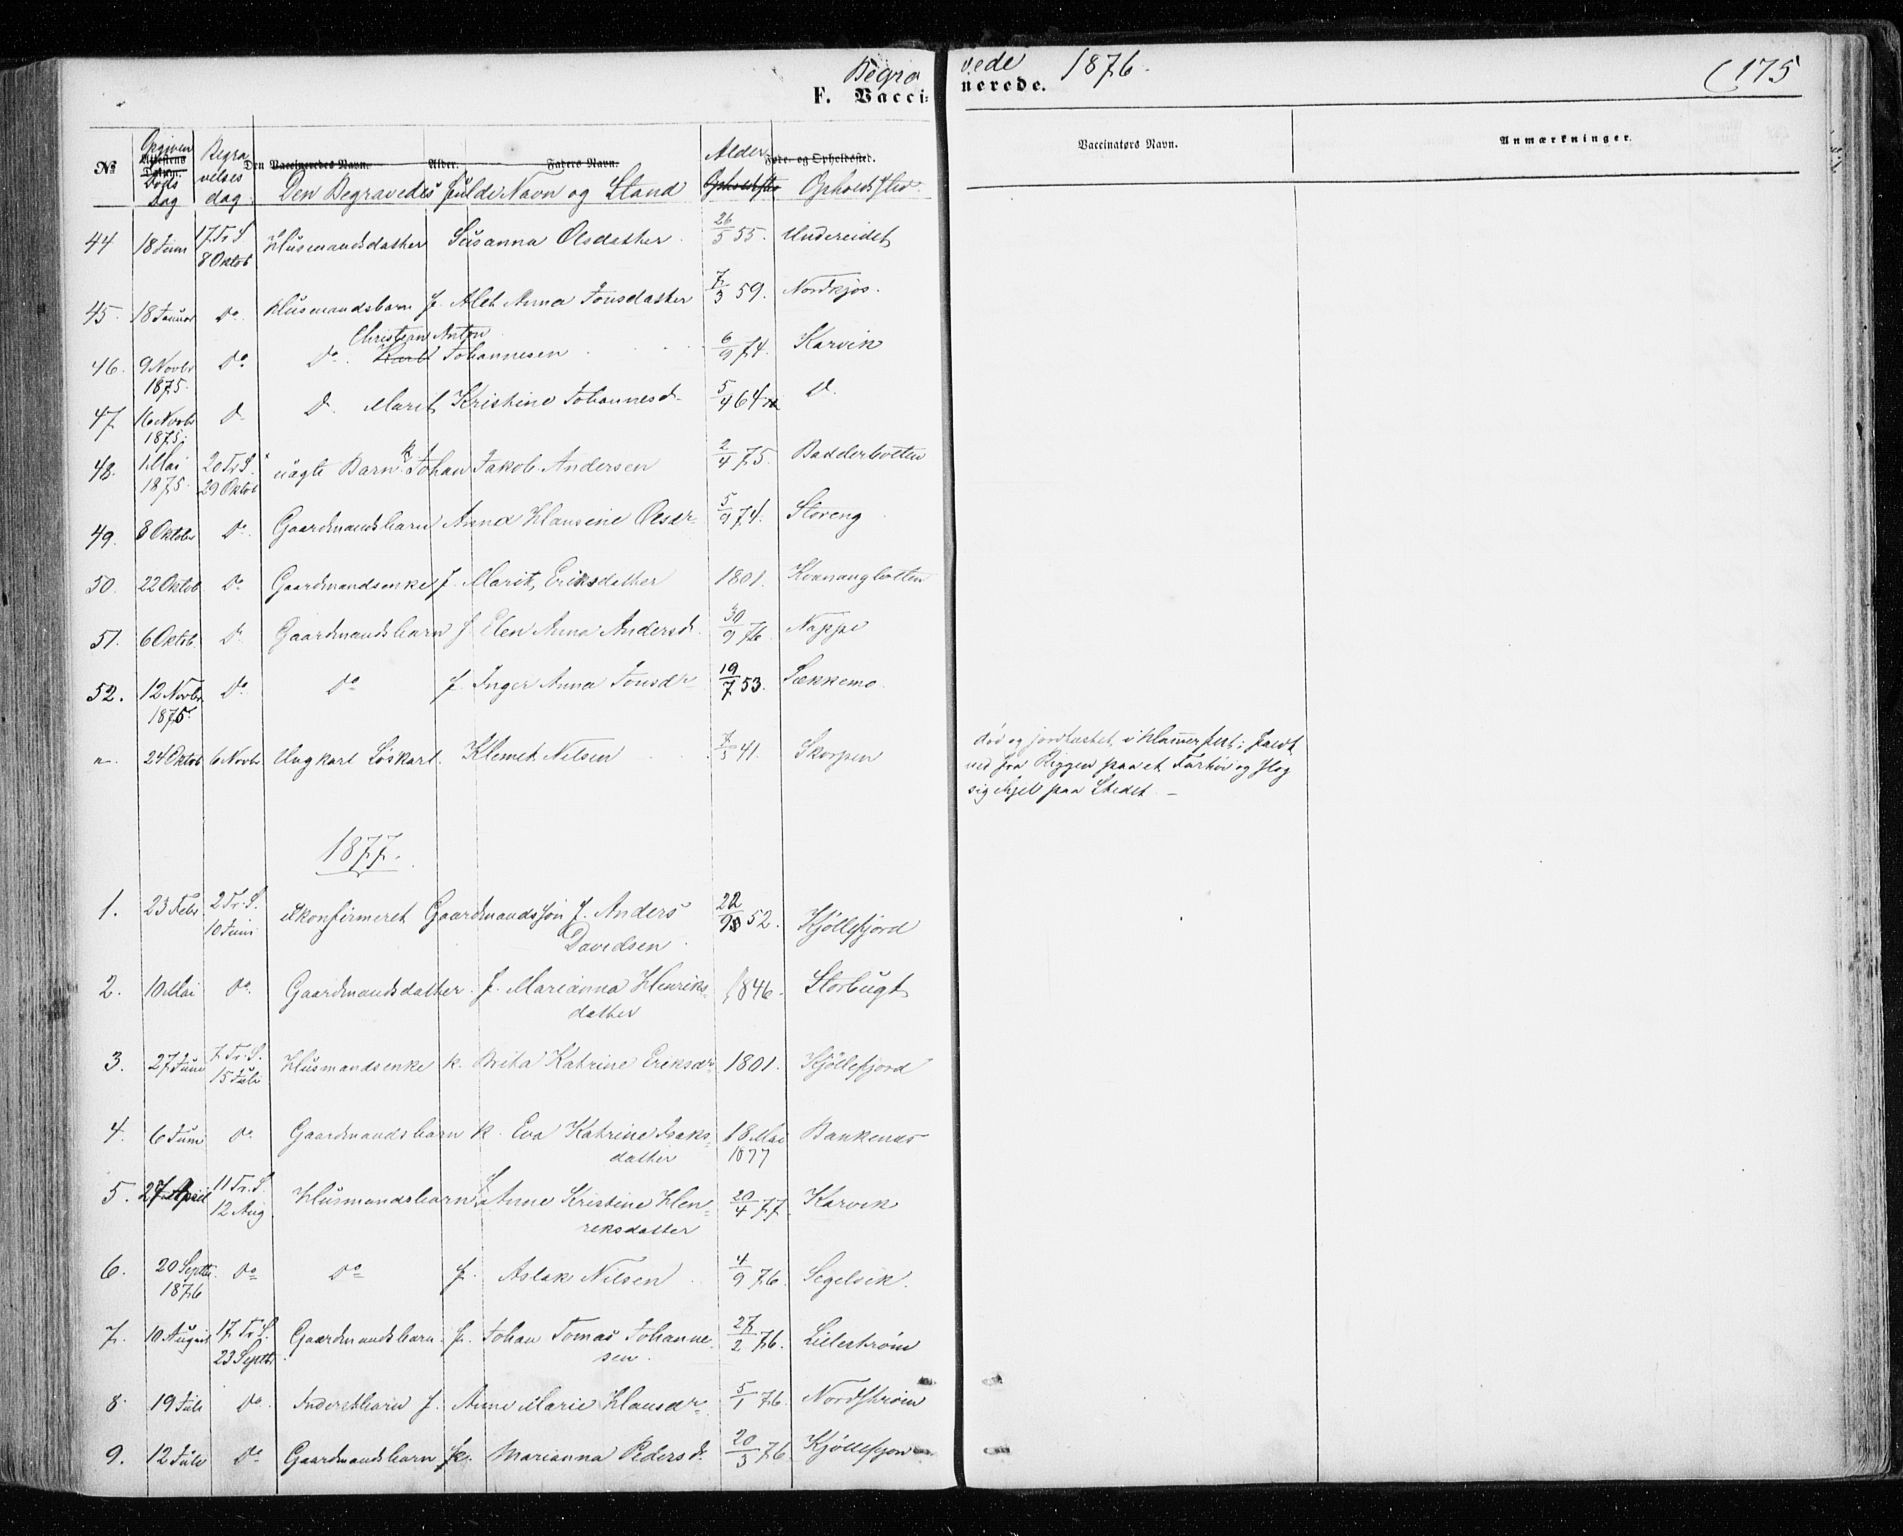 Begravede 1876. 175
F. Vaccinerede.
No Opgiven Attestens Datum. Døds Dag Begravelses dag Den Vaccineredes Navn. Alder. Faders Navn. Alder Føde- og Opholdsted. Vaccinatørs Navn. Anmærkninger.
Den Begravedes fulde Navn og Stand Opholdsste Opholdssted
44 18 Juni 17. Tr. S. 8 Oktob Husmandsdatter Susanna Olsdatter 26/5 55. Undereidet
45. 18 Januar Do. Husmandsbarn f. Alet Anna Jonsdatter 7/3 59. Nordkjos.
46. 9 Novbr 1875. Do Do. Christian Anton Johannesen 6/9 74. Karvik
47 16 Novbr 1875; D. D. Marit Kristine Johannesd. 5/4 64 D.
48. 1 Mai 1875. 20 Tr. S. 29 Oktob uægte Barn k. Johan Jakob Andersen 2/4 75. Badderbotten
49. 8 Oktober Do. Gaardmandsbarn Anna Klausine Olsdr 5/9 74. Storeng
50. 22 Oktob Do Gaardmandsenke f. Marit Eriksdatter 1801. Kvænangbotten
51. 6 Oktob. D. Gaardmandsbarn f. Elen Anna Andersd. 30/9 76. Nappe
52. 12 Novbr 1875. Do. Do f. Inger Anna Jonsdr 19/7 53. Sækkemo
a. 24 Oktob 6 Novbr. Ungkarl Løskarl. Klemet Nilsen 7/5 41. Skorpen død og jordfæstet i Hammerfest; faldt
ned fra Riggen paa et Fartøi og slog
sig ihjel paa Stedet. —
1877.
1. 23 Febr. 2 Tr. S. 10 Juni ukonfirmeret Gaardmandssøn f. Anders Davidsen 22/9 52. Kjøllefjord
2. 10 Mai Do. Gaardmandsdatter f. Marianna Henriksdatter 1846. Storbugt
3. 27 Juni 7. Tr. S. 15 Juli Husmandsenke k. Brita Katrine Eriksdr 1801. Kjøllefjord
4. 6 Juni Do. Gaardmandsbarn k. Eva Katrine Isaksdatter 18 Mai 1877 Bankenæs
5. 27 April 11 Tr. S. 12 Aug. Husmandsbarn f. Anne Kristine Henriksdatter 20/4 77. Karvik
6. 20 Septbr. 1876. Do Do f. Aslak Nilsen 4/9 76. Segelvik.
7. 10 August 17. Tr. S. 23 Septbr. Gaardmandsbarn f. Johan Tomas Johannesen. 27/2 76. Lillestrøm
8 19 Juli Do. Inderstbarn f. Anne Marie Klausdr. 5/1 76. Nordstrøm
9. 12 Juli Do Gaardmandsbarn k. Marianna Pedersd. 20/3 76. Kjøllefjor